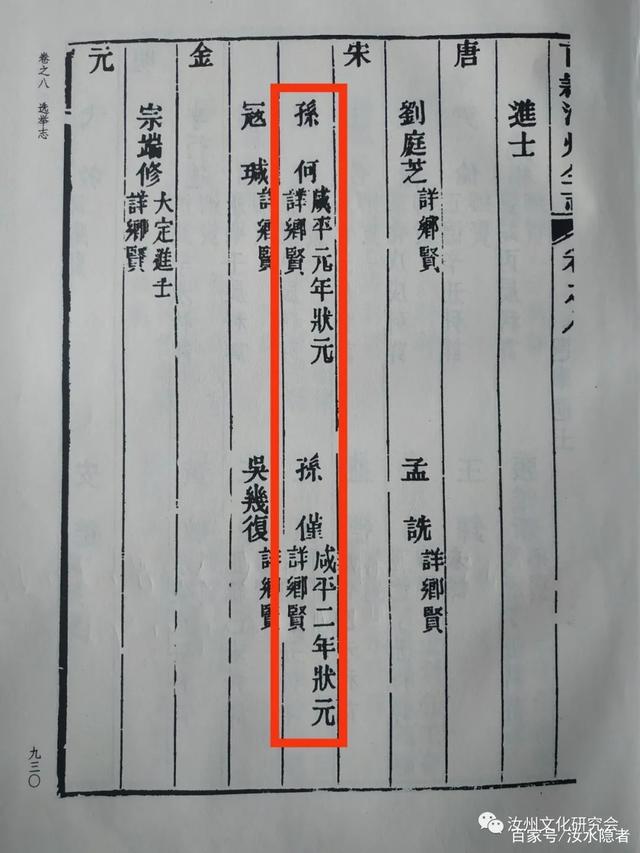 直隸汝州全志 卷之八
進士
唐
劉庭芝 詳鄉賢 孟詵 詳鄉賢
宋
孫何 咸平元年狀元 詳鄉賢 孫僅 咸平二年狀元 詳鄉賢
冦瑊 詳鄉賢 吳幾復 詳鄉賢
金
宗端修 大定進士 詳鄉賢
元
卷之八 选举志
九三〇
汝州文化研究会
百家号/汝水隐者